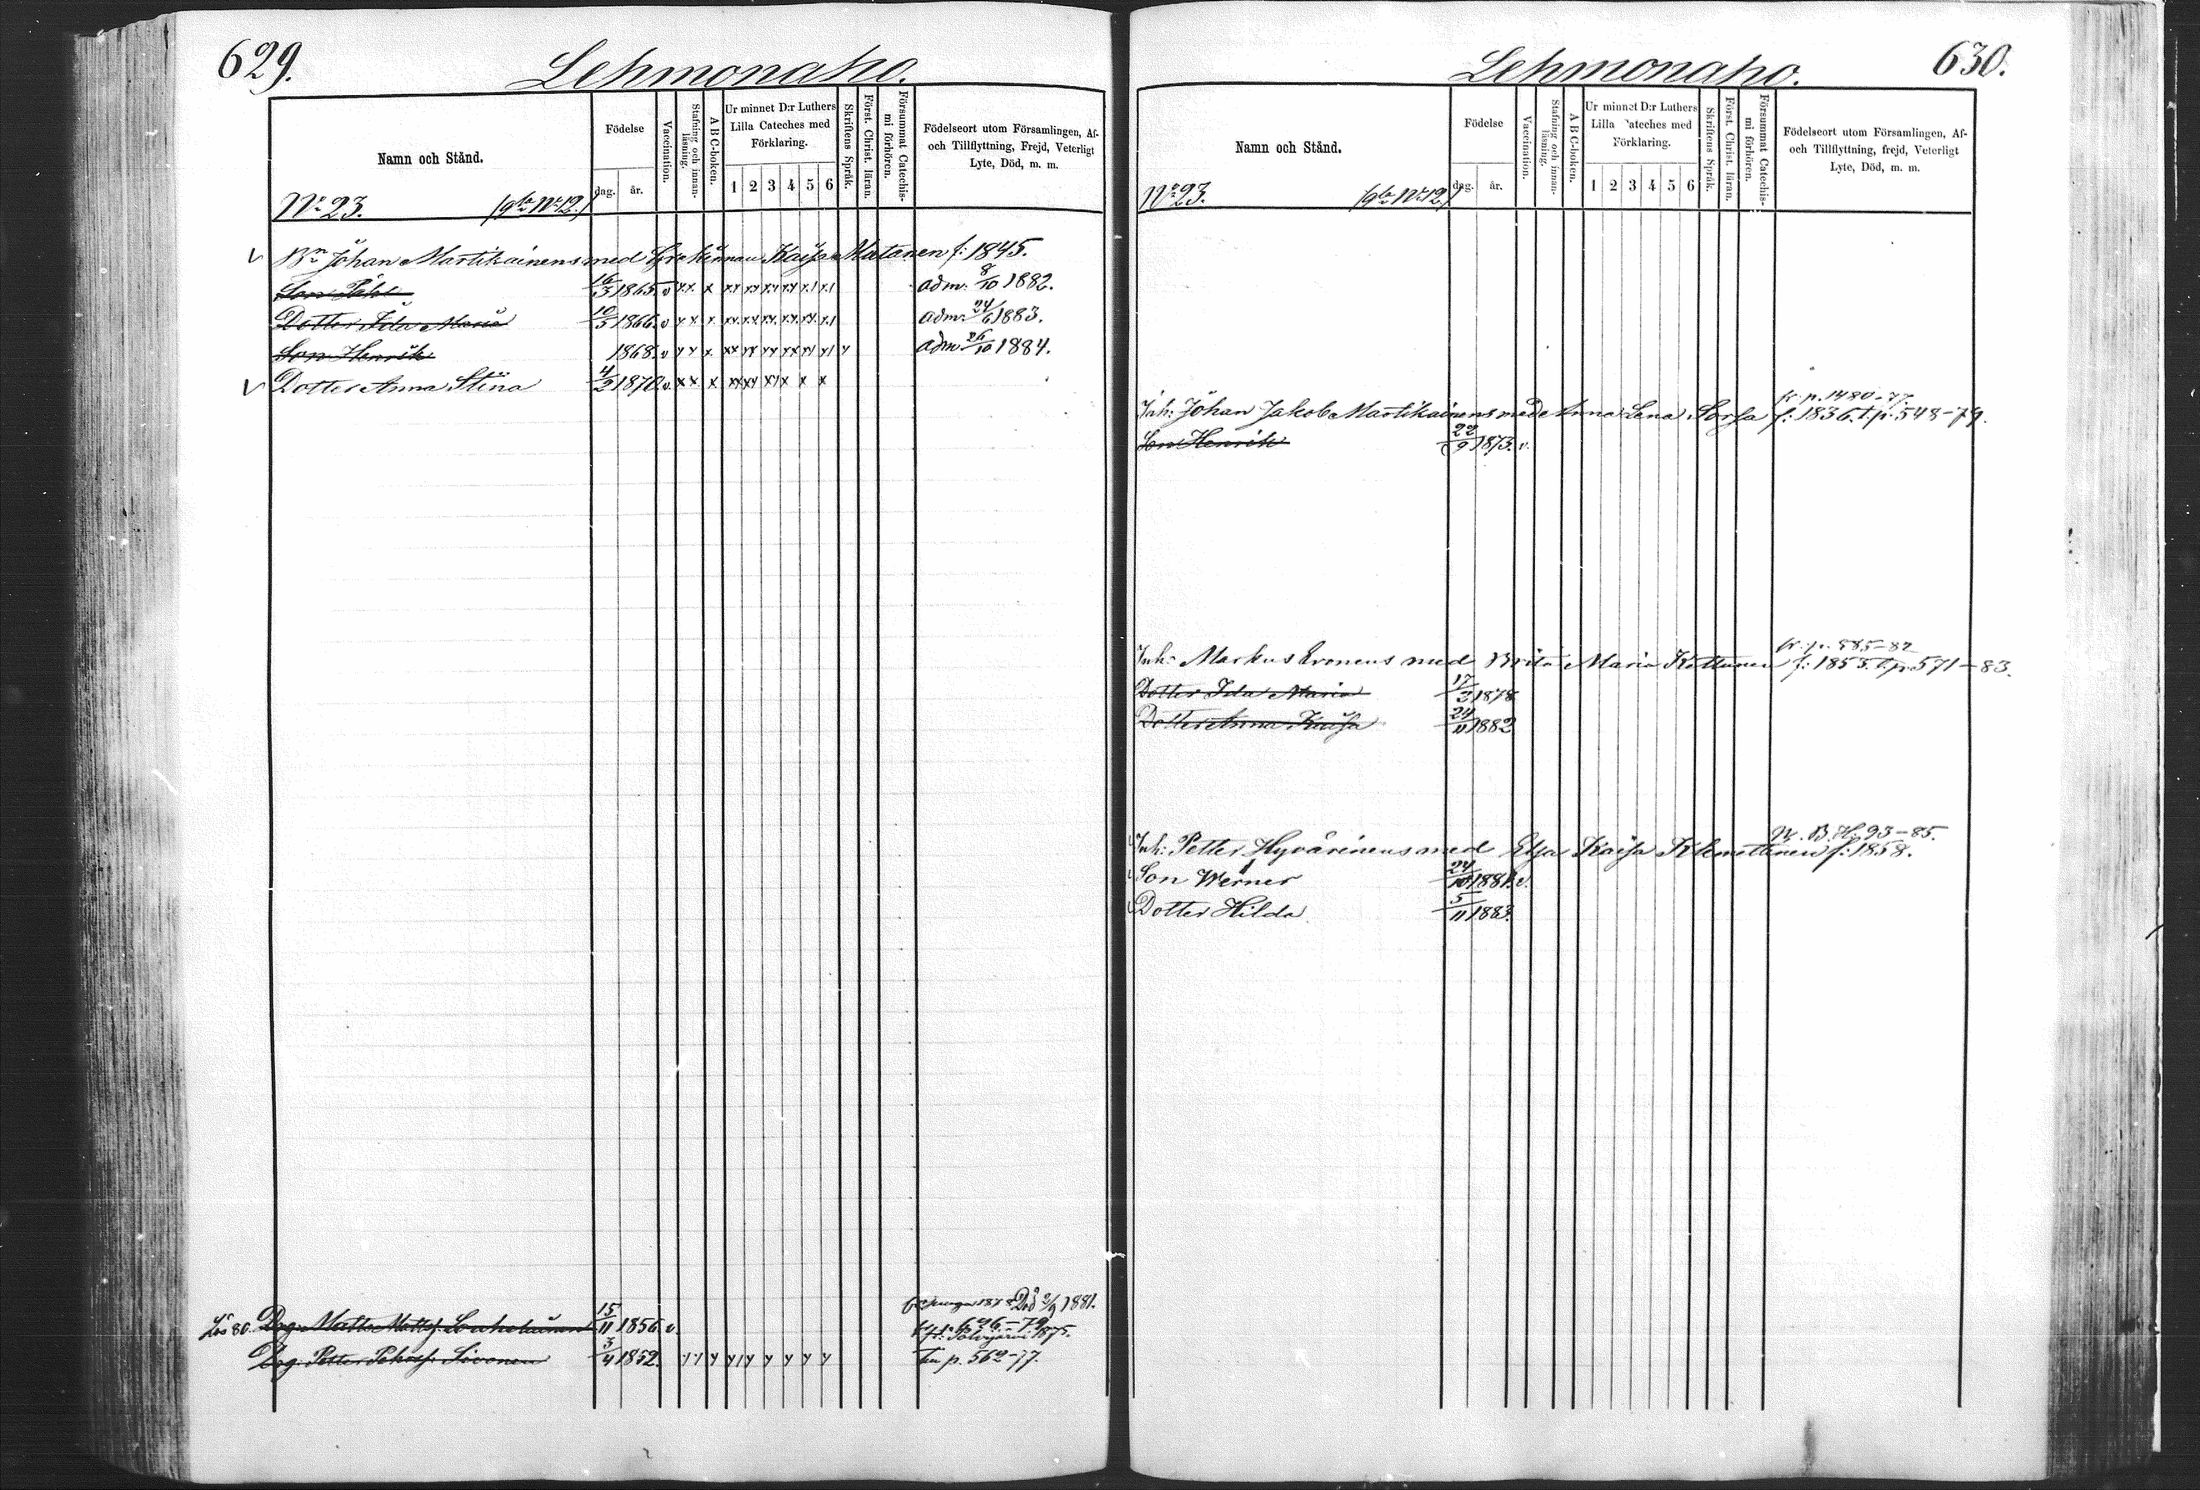 629.
Lehmonaho.
Namn och Stånd.
Födelse
dag.
år.
Vaccination.
Stafning och innan-
läsning.
A B C-boken.
Ur minnet D:r Luthers
Lilla Cateches med
Förklaring.
1 2 3 4 5 6
Skriftens Språk.
Först. Christ. läran.
Försummat Catechis-
mi förhören.
Födelseort utom Församlingen, Af-
och Tillflyttning, Frejd, Veterligt
Lyte, Död, m. m.
No 23.
No 12.
v Johan Martikainens med Kaisa f: 1845.
Son 16/3 1865. v xx x adm. 8/10 1882.
Dotter Ida Maria 10/5 1866. v x x x adm. 24/6 1883.
Son Henrik 1868. v x x x adm 26/10 1884.
v Dotter Anna Stina 4/2 1870. v. x x x
Död 2/9 1881.
Drg. Matts Mattsf. 15/11 1856. v. 626-79
Polvijärvi 1875.
Drg. Petter Sivonen 3/4 1852. p. 562-77.
630.
Lehmonaho.
Namn och Stånd.
Födelse
dag.
år.
Vaccination.
Stafning och innan-
läsning.
A B C-boken.
Ur minnet D:r Luthers
Lilla Cateches med
Förklaring.
1 2 3 4 5 6
Skriftens Språk.
Först. Christ. läran.
Försummat Catechis-
mi förhören.
Födelseort utom Församlingen, Af-
och Tillflyttning, frejd, Veterligt
Lyte, Död, m. m.
No 23.
No 12.
fr. p. 1480-77.
Inh: Johan Jakob Martikainens med Anna Lena Sorsa f: 1836. t. p. 548-79.
Son Henrik 22/9 1873. v.
fr. p. 585-82
Inh: Markus Eronens med Brita Maria Kettunen f: 1855. t. p. 571-83.
Dotter Ida Maria 17/3 1878
Dotter Anna Kaisa 24/11 1882
B. H. 93-85.
Inh: Petter Hyvärinens med Elsa Kaisa Klemettinen f: 1858.
Son Werner 24/10 1881. v.
Dotter Hilda 5/11 1883.